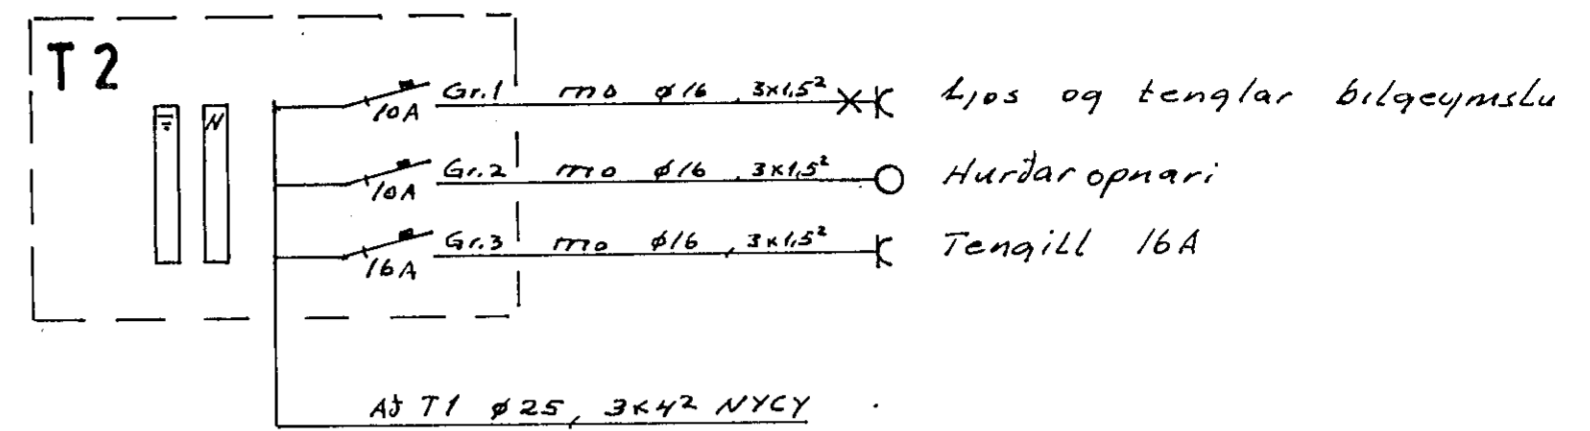 T 2
N
10A Gr.1 mo ø16, 3x1,5² Ljos og tenglar bilgeymslu
10A Gr.2 mo ø16, 3x1,5² Hurðaropnari
16A Gr.3 mo ø16, 3x1,5² Tengill 16A
Að T1 ø25, 3x4² NYCY